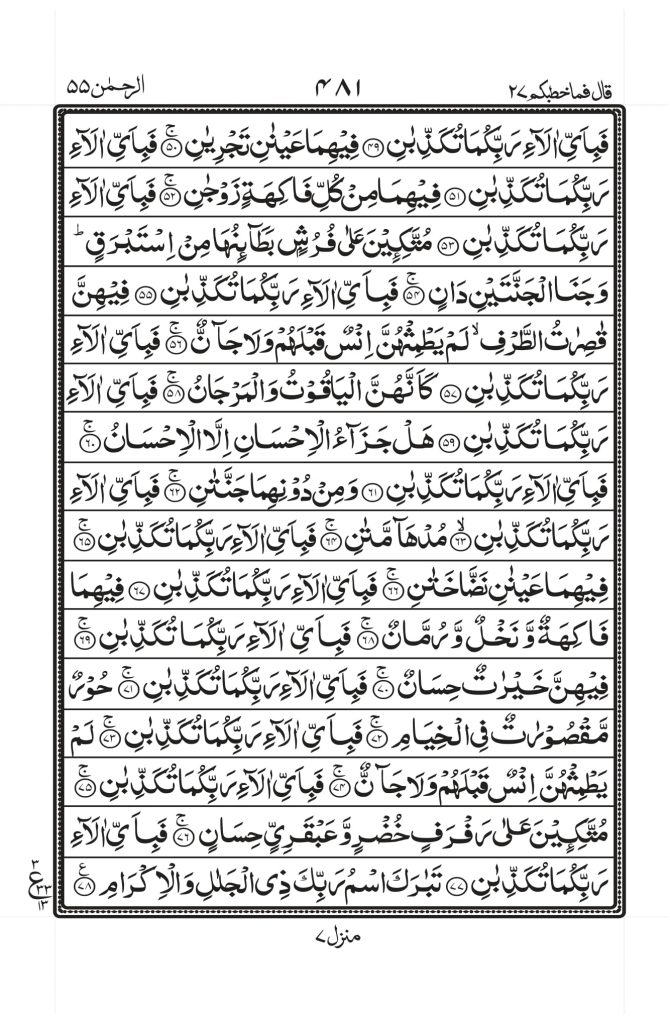 قال فما خطبکم ۲۷ ۴۸۱ الرحمٰن ۵۵
فَبِاَیِّ اٰلَآءِ رَبِّكُمَا تُكَذِّبٰنِ ﴿۴۹﴾ فِیْهِمَا عَیْنٰنِ تَجْرِیٰنِ ۚ﴿۵۰﴾ فَبِاَیِّ اٰلَآءِ
رَبِّكُمَا تُكَذِّبٰنِ ﴿۵۱﴾ فِیْهِمَا مِنْ كُلِّ فَاكِهَةٍ زَوْجٰنِ ۚ﴿۵۲﴾ فَبِاَیِّ اٰلَآءِ
رَبِّكُمَا تُكَذِّبٰنِ ﴿۵۳﴾ مُتَّكِـِٕیْنَ عَلٰی فُرُشٍۭ بَطَآىِٕنُهَا مِنْ اِسْتَبْرَقٍ ؕ
وَجَنَا الْجَنَّتَیْنِ دَانٍ ۚ﴿۵۴﴾ فَبِاَیِّ اٰلَآءِ رَبِّكُمَا تُكَذِّبٰنِ ﴿۵۵﴾ فِیْهِنَّ
قٰصِرٰتُ الطَّرْفِ ۙ لَمْ یَطْمِثْهُنَّ اِنْسٌ قَبْلَهُمْ وَلَا جَآنٌّ ۚ﴿۵۶﴾ فَبِاَیِّ اٰلَآءِ
رَبِّكُمَا تُكَذِّبٰنِ ﴿۵۷﴾ كَاَنَّهُنَّ الْیَاقُوْتُ وَالْمَرْجَانُ ۚ﴿۵۸﴾ فَبِاَیِّ اٰلَآءِ
رَبِّكُمَا تُكَذِّبٰنِ ﴿۵۹﴾ هَلْ جَزَآءُ الْاِحْسَانِ اِلَّا الْاِحْسَانُ ۚ﴿۶۰﴾
فَبِاَیِّ اٰلَآءِ رَبِّكُمَا تُكَذِّبٰنِ ﴿۶۱﴾ وَمِنْ دُوْنِهِمَا جَنَّتٰنِ ۚ﴿۶۲﴾ فَبِاَیِّ اٰلَآءِ
رَبِّكُمَا تُكَذِّبٰنِ ۙ﴿۶۳﴾ مُدْهَآمَّتٰنِ ۚ﴿۶۴﴾ فَبِاَیِّ اٰلَآءِ رَبِّكُمَا تُكَذِّبٰنِ ۚ﴿۶۵﴾
فِیْهِمَا عَیْنٰنِ نَضَّاخَتٰنِ ۚ﴿۶۶﴾ فَبِاَیِّ اٰلَآءِ رَبِّكُمَا تُكَذِّبٰنِ ﴿۶۷﴾ فِیْهِمَا
فَاكِهَةٌ وَّنَخْلٌ وَّرُمَّانٌ ۚ﴿۶۸﴾ فَبِاَیِّ اٰلَآءِ رَبِّكُمَا تُكَذِّبٰنِ ۚ﴿۶۹﴾
فِیْهِنَّ خَیْرٰتٌ حِسَانٌ ۚ﴿۷۰﴾ فَبِاَیِّ اٰلَآءِ رَبِّكُمَا تُكَذِّبٰنِ ۚ﴿۷۱﴾ حُوْرٌ
مَّقْصُوْرٰتٌ فِی الْخِیَامِ ۚ﴿۷۲﴾ فَبِاَیِّ اٰلَآءِ رَبِّكُمَا تُكَذِّبٰنِ ۚ﴿۷۳﴾ لَمْ
یَطْمِثْهُنَّ اِنْسٌ قَبْلَهُمْ وَلَا جَآنٌّ ۚ﴿۷۴﴾ فَبِاَیِّ اٰلَآءِ رَبِّكُمَا تُكَذِّبٰنِ ۚ﴿۷۵﴾
مُتَّكِـِٕیْنَ عَلٰی رَفْرَفٍ خُضْرٍ وَّعَبْقَرِیٍّ حِسَانٍ ۚ﴿۷۶﴾ فَبِاَیِّ اٰلَآءِ
رَبِّكُمَا تُكَذِّبٰنِ ﴿۷۷﴾ تَبٰرَكَ اسْمُ رَبِّكَ ذِی الْجَلٰلِ وَالْاِكْرَامِ ﴿۷۸﴾ؑ
۳
ع ۳۳
۱۳
منزل ۷